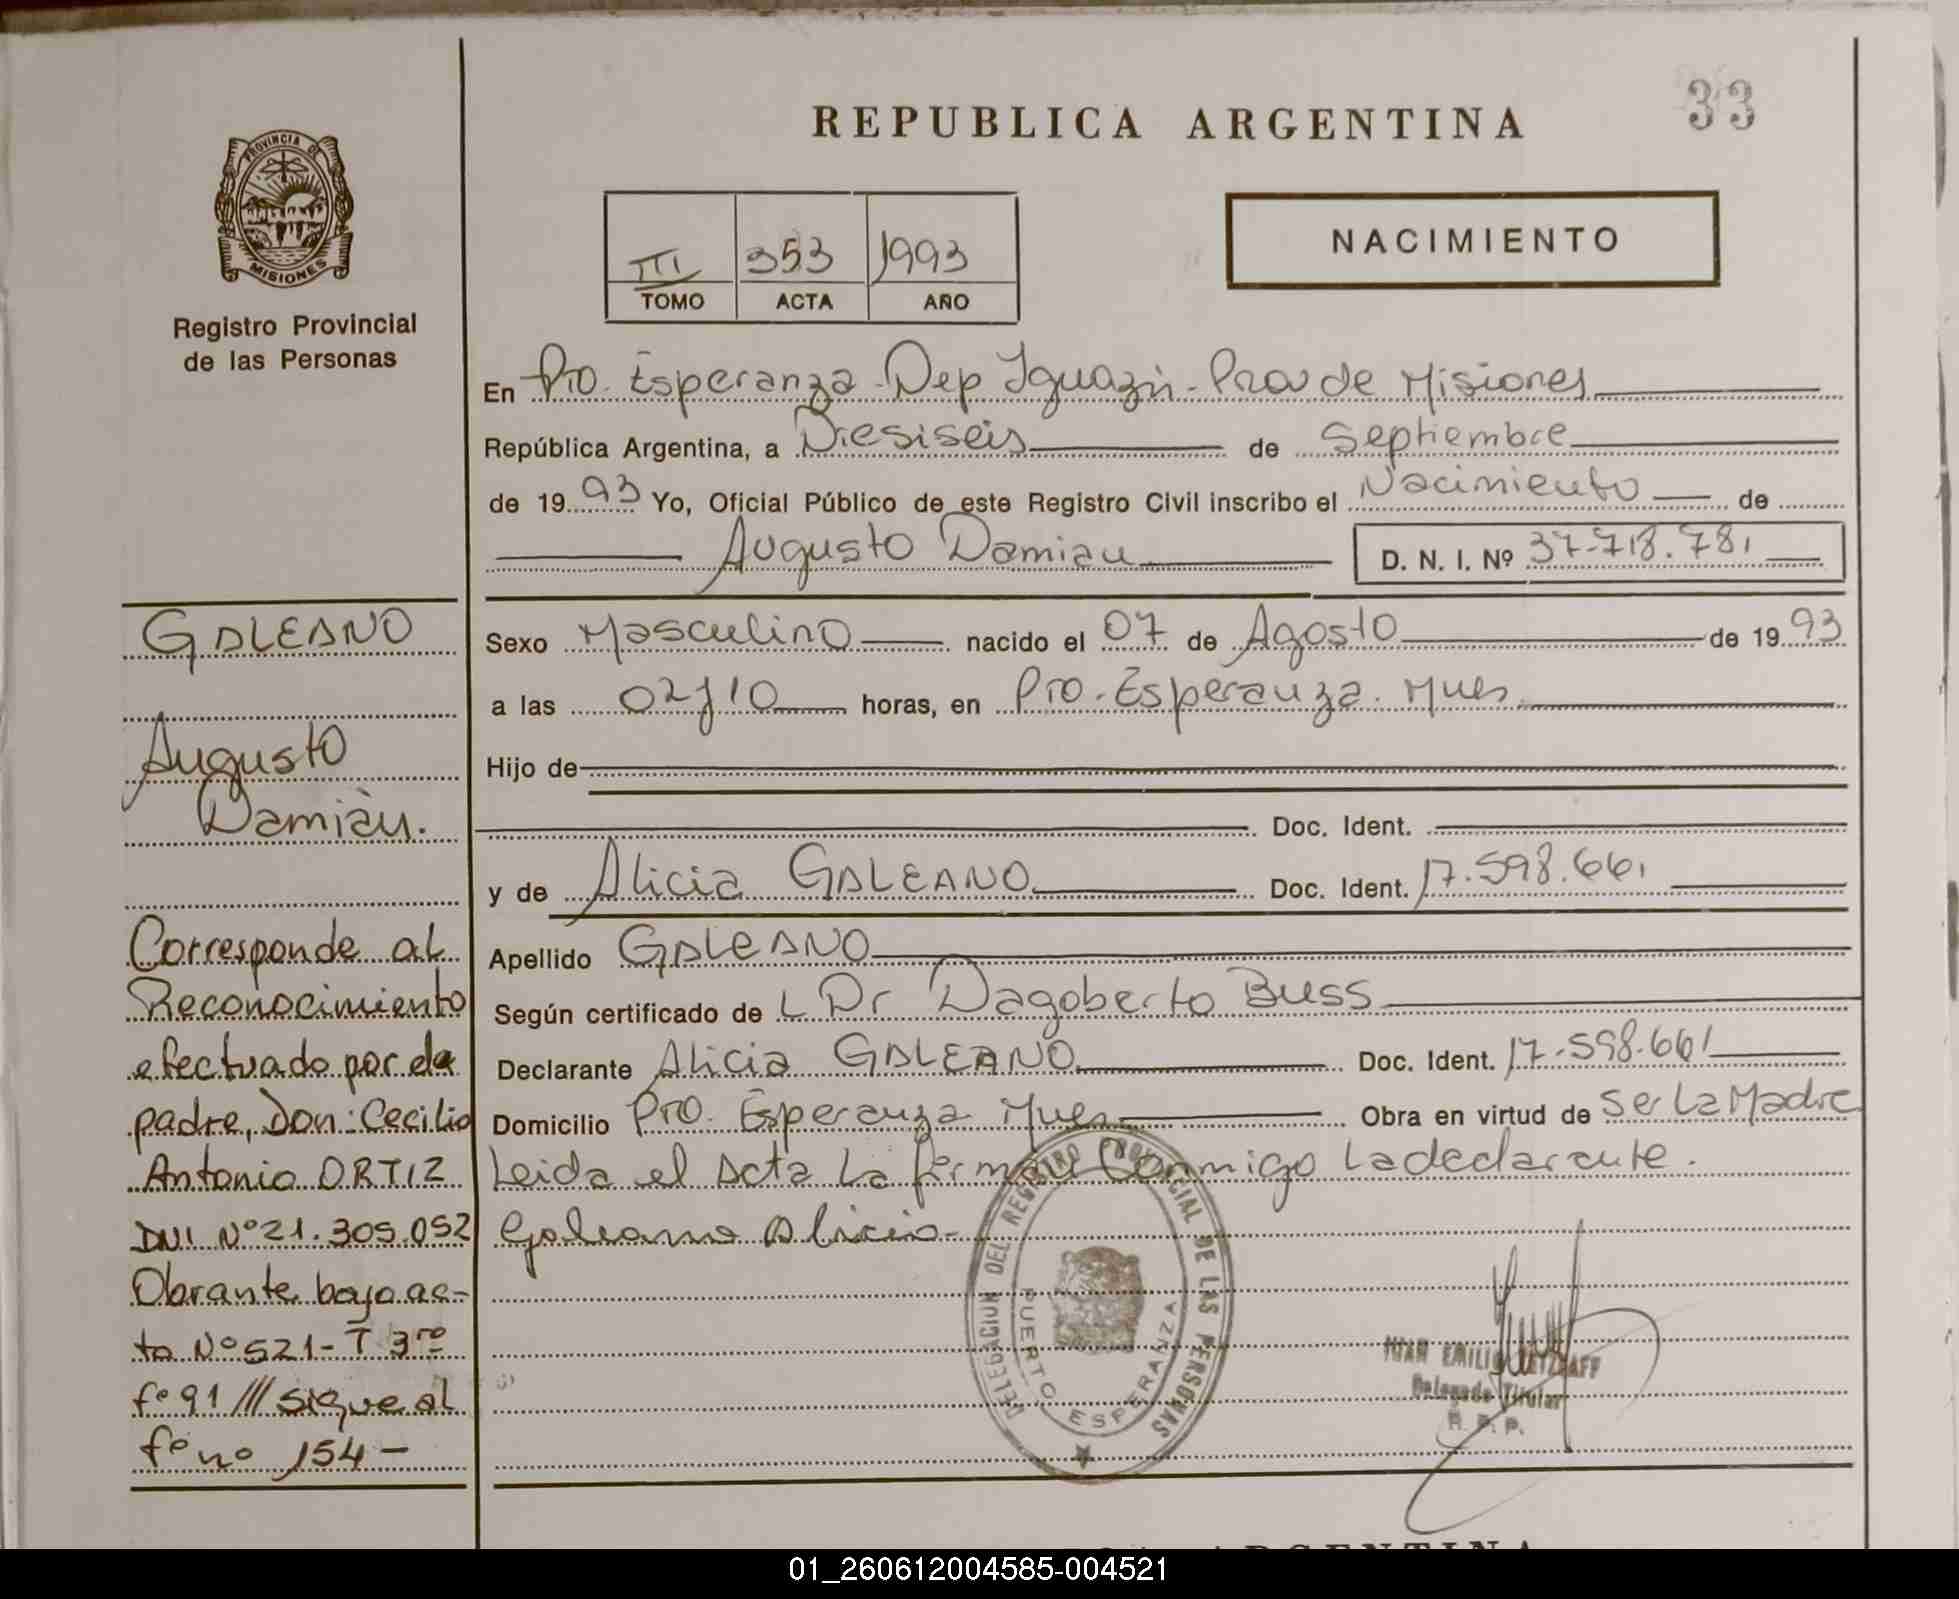 33
REPUBLICA ARGENTINA
PROVINCIA DE
MISIONES
Registro Provincial
de las Personas
III 353 1993
TOMO ACTA AÑO
NACIMIENTO
En Pto. Esperanza - Dep Iguazú - Prov de Misiones
República Argentina, a Diesiseis de Septiembre
de 1993 Yo, Oficial Público de este Registro Civil inscribo el Nacimiento de
Augusto Damian D. N. I. Nº 37.718.781
Sexo Masculino nacido el 07 de Agosto de 1993
a las 02y10 horas, en Pto. Esperanza. Mnes
Hijo de
Doc. Ident.
y de Alicia GALEANO Doc. Ident. 17.598.661
Apellido GALEANO
Según certificado de L Dr Dagoberto Buss
Declarante Alicia GALEANO Doc. Ident. 17.598.661
Domicilio Pto. Esperanza Mnes Obra en virtud de Ser La Madre
Leida el Acta La firman Conmigo La declarante.
Galeano Alicia
GALEANO
Augusto
Damián.
Corresponde al
Reconocimiento
efectuado por el
padre, Don: Cecilio
Antonio ORTIZ
DNI Nº 21.305.052
Obrante bajo ac-
ta Nº 521 - T 3ro
fº 91 /// sigue al
fº nº 154 -
DELEGACION DEL REGISTRO PROVINCIAL DE LAS PERSONAS
PUERTO ESPERANZA
JUAN EMILIO
Delegado Titular
R. P. P.
ARGENTINA
01_260612004585-004521